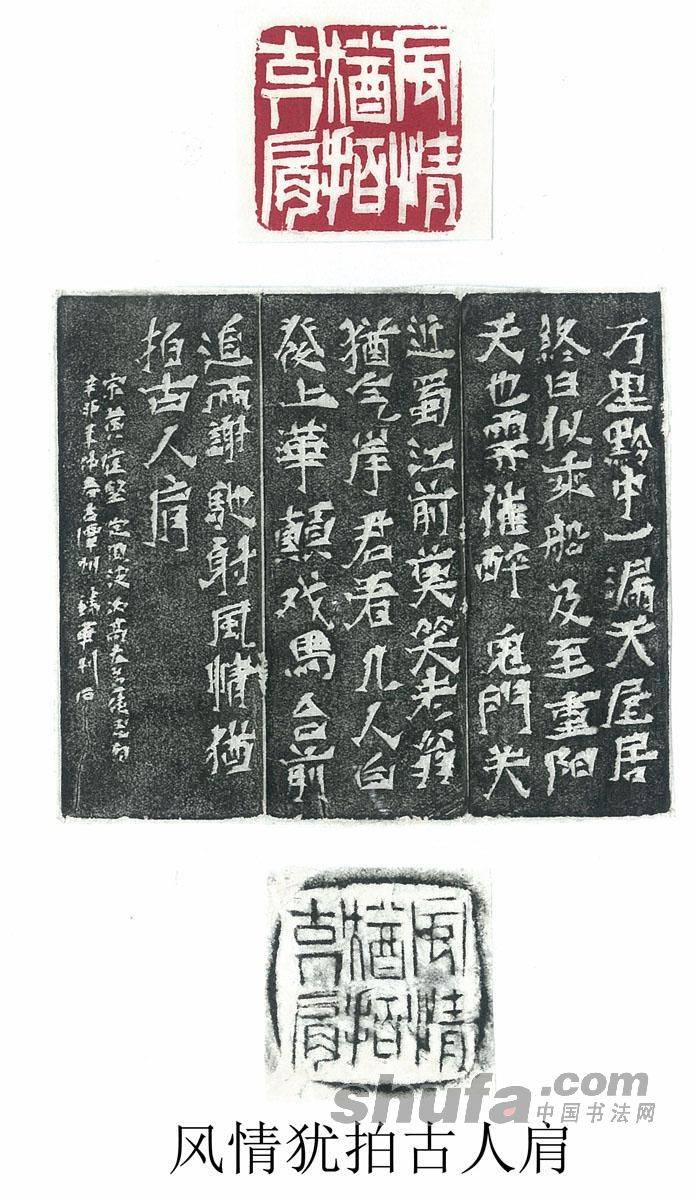 风情
猶拍
古人肩
万里黔中一漏天屋居
終日似乘船及至重阳
天也霽催醉鬼門关
近蜀江前莫笑老翁
猶气岸君看几人白
發上華顛戏馬台前
追兩謝馳射風情猶
拍古人肩
宋黃庭堅定風波次高左藏使君韵
辛卯年仲春古潭州刊石
风情
猶拍
古人肩
shufa.com
中国书法网
风情犹拍古人肩